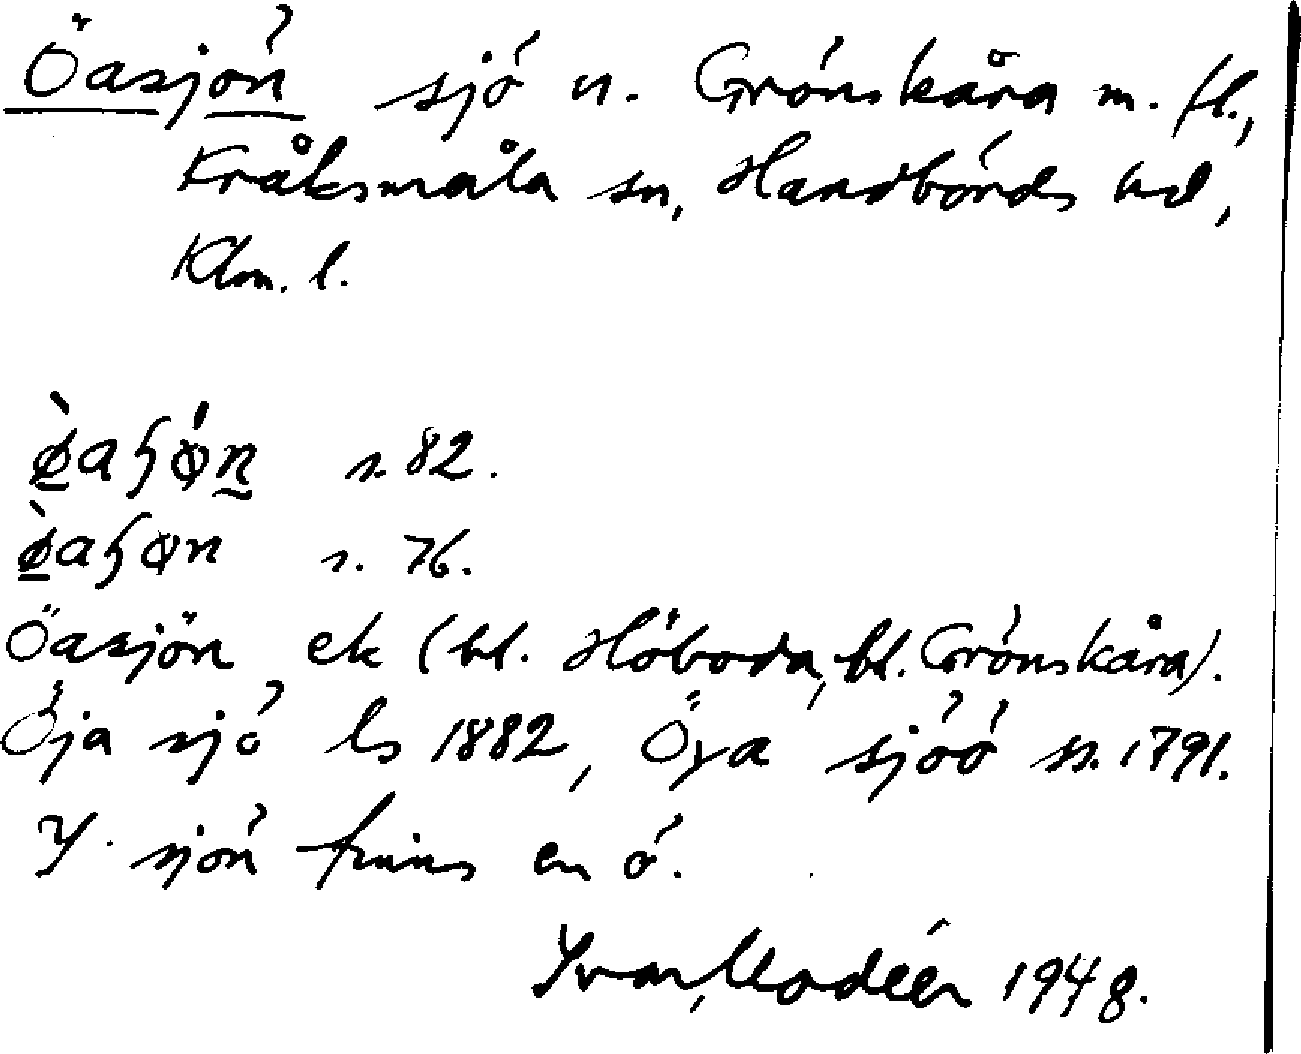 Öasjön sjö n. Grönskåra m. fl.,
Kråksmåla sn, Handbörds hd,
Klm. l.
ø̀aɧǿn s. 82.
ø̀aɧøn s. 76.
Öasjön ek (bl. Höboda, bl. Grönskåra).
Öja sjö ls 1882, Öya sjöö s. 1791.
I sjön finns en ö.
Ivar Modéer 1948.